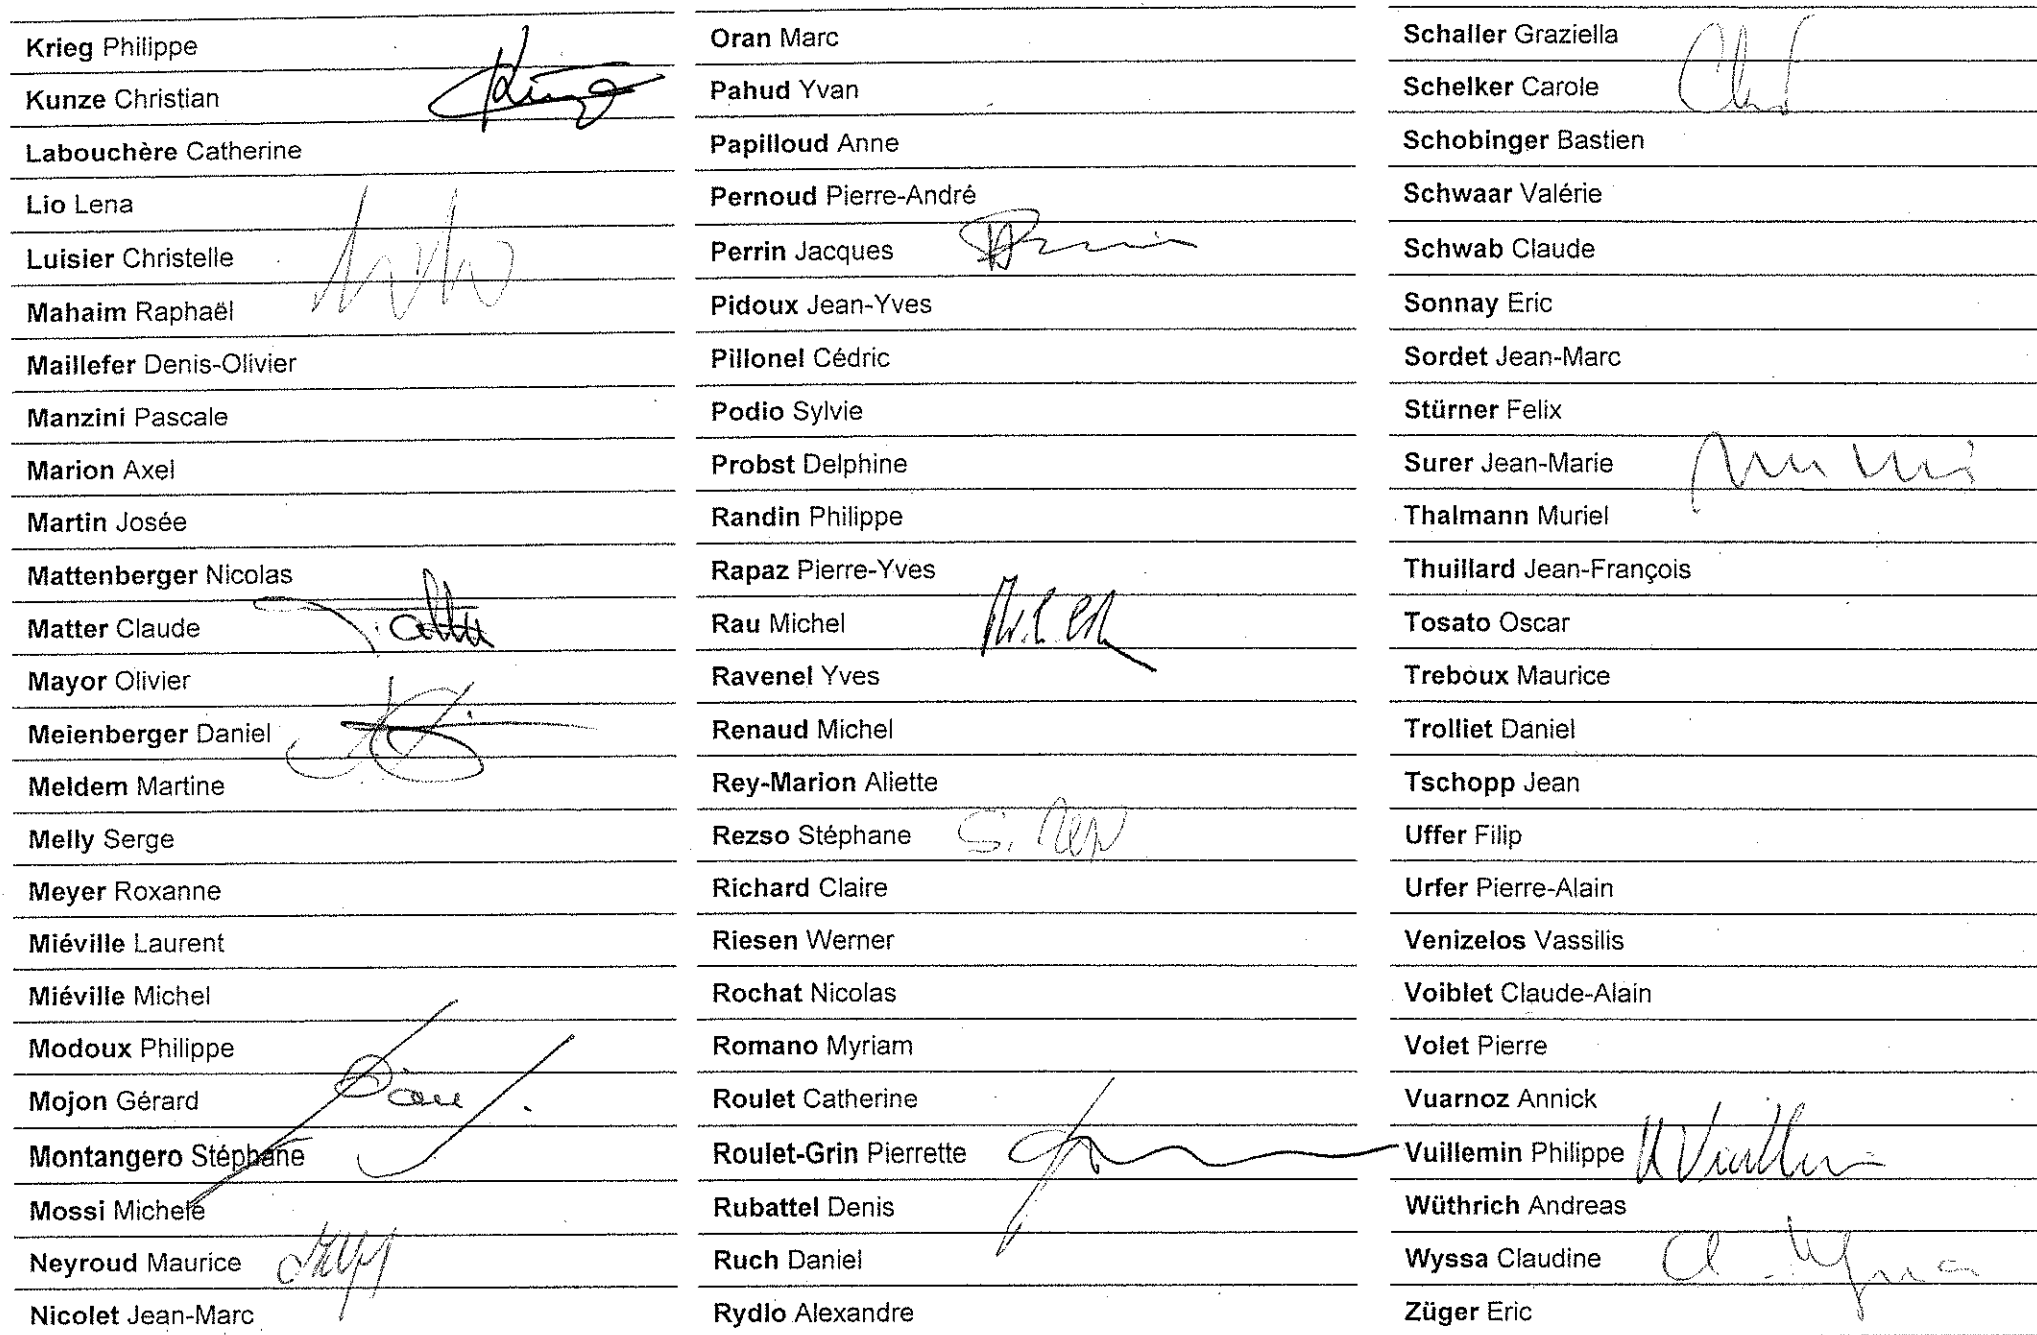 Krieg Philippe
Kunze Christian
Labouchère Catherine
Lio Lena
Luisier Christelle
Mahaim Raphaël
Maillefer Denis-Olivier
Manzini Pascale
Marion Axel
Martin Josée
Mattenberger Nicolas
Matter Claude
Mayor Olivier
Meienberger Daniel
Meldem Martine
Melly Serge
Meyer Roxanne
Miéville Laurent
Miéville Michel
Modoux Philippe
Mojon Gérard
Montangero Stéphane
Mossi Michele
Neyroud Maurice
Nicolet Jean-Marc
Oran Marc
Pahud Yvan
Papilloud Anne
Pernoud Pierre-André
Perrin Jacques
Pidoux Jean-Yves
Pillonel Cédric
Podio Sylvie
Probst Delphine
Randin Philippe
Rapaz Pierre-Yves
Rau Michel
Ravenel Yves
Renaud Michel
Rey-Marion Aliette
Rezso Stéphane
Richard Claire
Riesen Werner
Rochat Nicolas
Romano Myriam
Roulet Catherine
Roulet-Grin Pierrette
Rubattel Denis
Ruch Daniel
Rydlo Alexandre
Schaller Graziella
Schelker Carole
Schobinger Bastien
Schwaar Valérie
Schwab Claude
Sonnay Eric
Sordet Jean-Marc
Stürner Felix
Surer Jean-Marie
Thalmann Muriel
Thuillard Jean-François
Tosato Oscar
Treboux Maurice
Trolliet Daniel
Tschopp Jean
Uffer Filip
Urfer Pierre-Alain
Venizelos Vassilis
Voiblet Claude-Alain
Volet Pierre
Vuarnoz Annick
Vuillemin Philippe
Wüthrich Andreas
Wyssa Claudine
Züger Eric